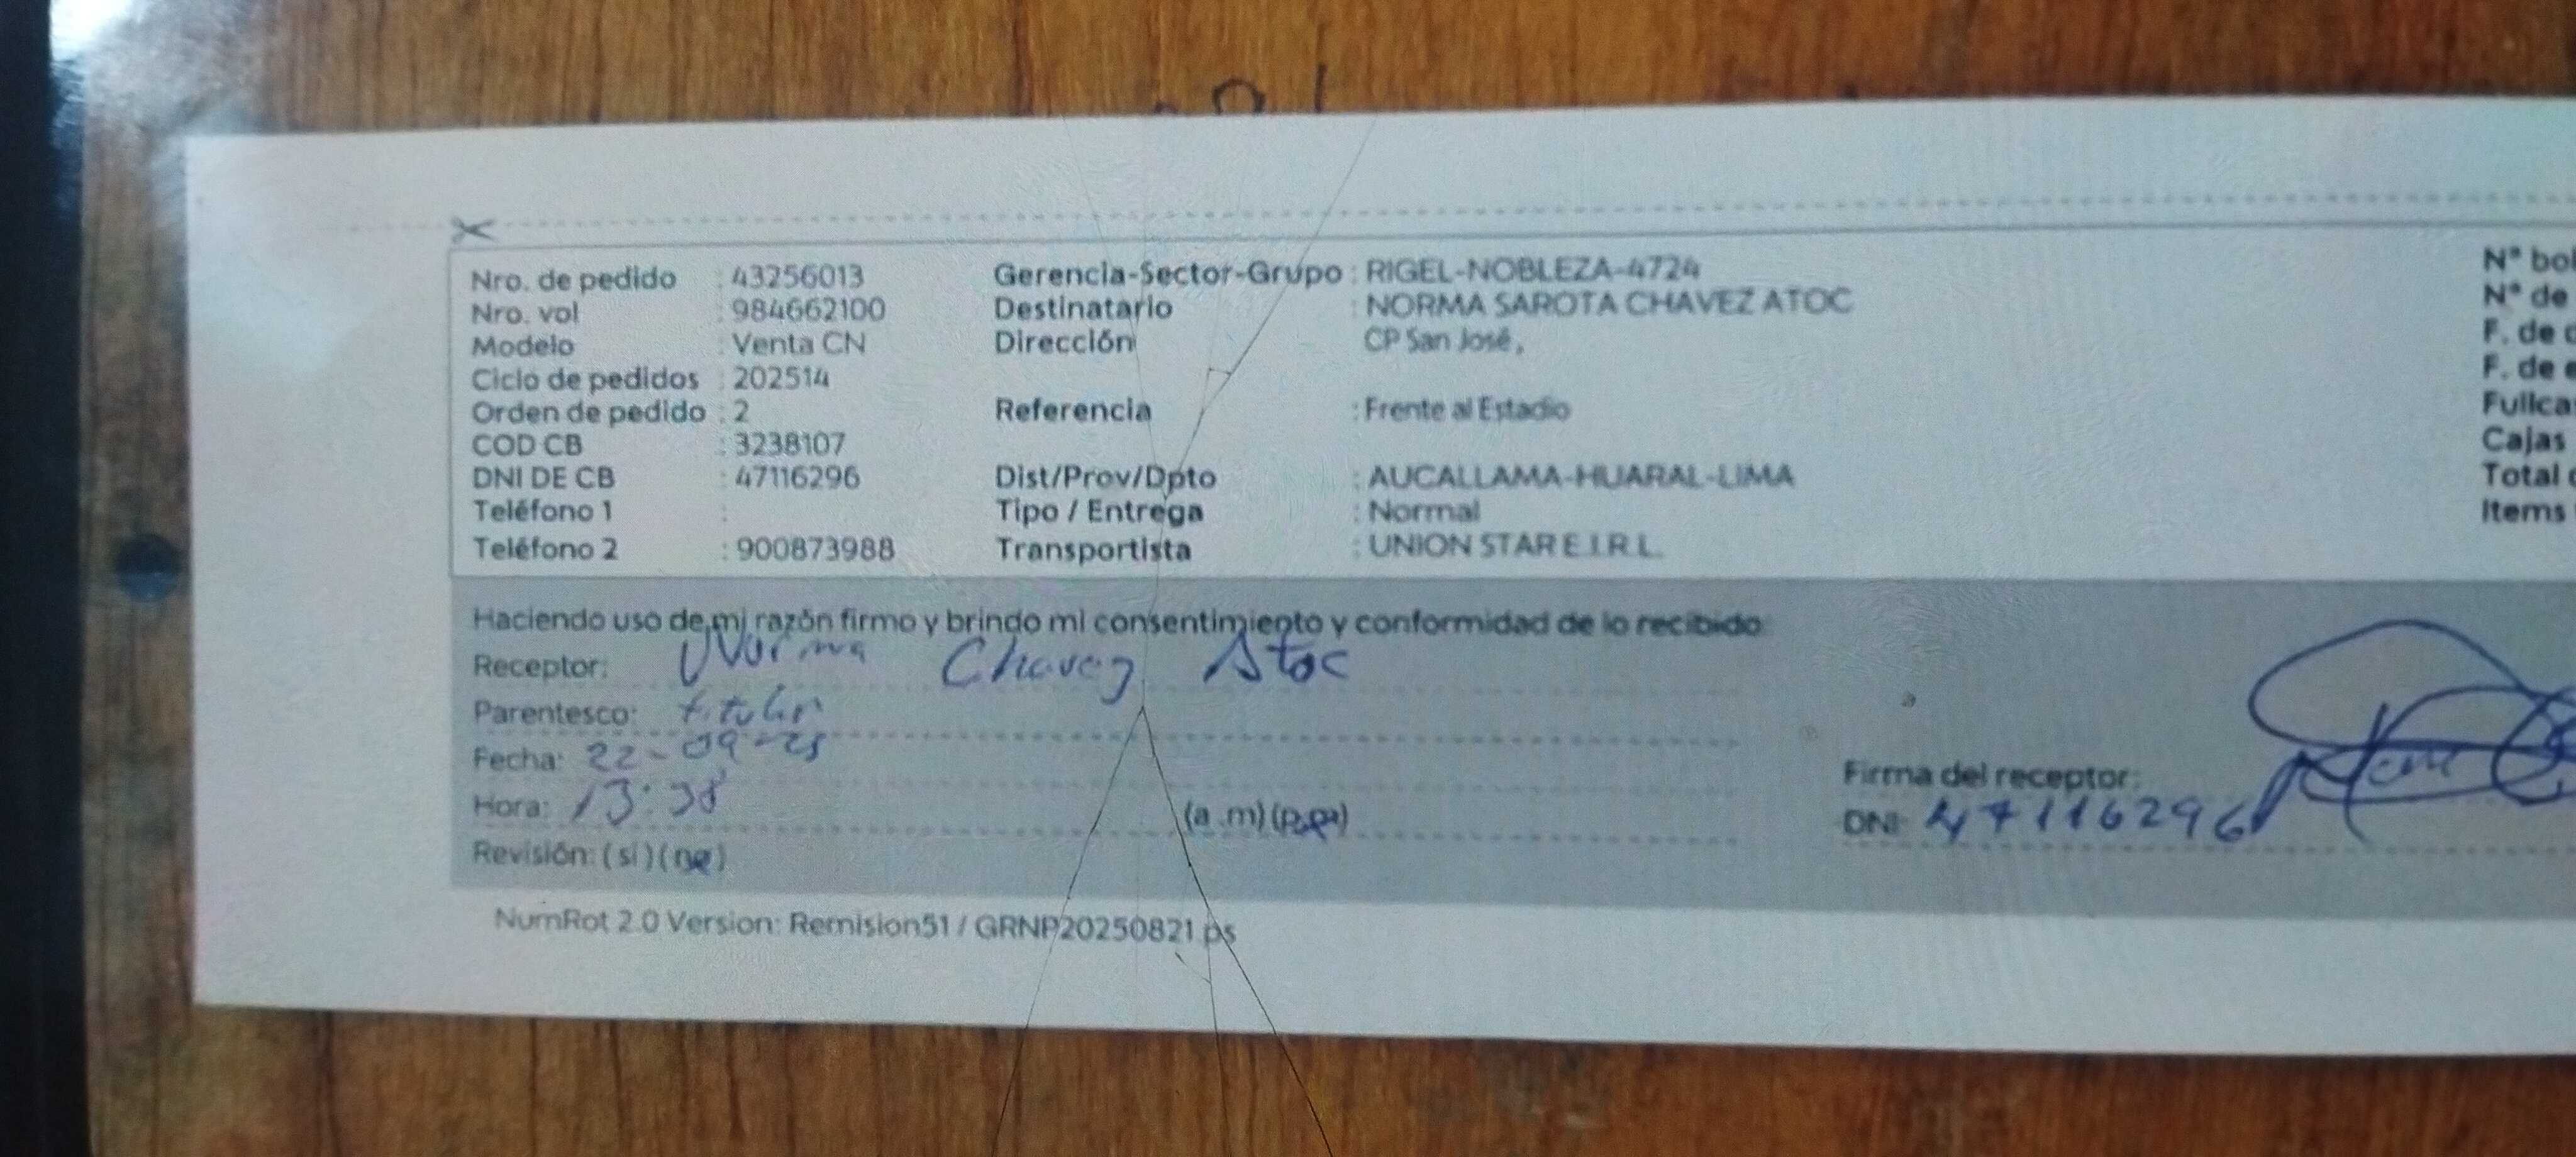 Nro. de pedido : 43256013 Gerencia-Sector-Grupo : RIGEL-NOBLEZA-4724 N° bol
Nro. vol : 984662100 Destinatario : NORMA SAROTA CHAVEZ ATOC N° de
Modelo : Venta CN Dirección CP San José, F. de
Ciclo de pedidos : 202514 F. de e
Orden de pedido : 2 Referencia : Frente al Estadio Fullca
COD CB : 3238107 Cajas
DNI DE CB : 47116296 Dist/Prov/Dpto : AUCALLAMA-HUARAL-LIMA Total
Teléfono 1 : Tipo / Entrega : Normal Items
Teléfono 2 : 900873988 Transportista : UNION STAR E.I.R.L.
Haciendo uso de mi razón firmo y brindo mi consentimiento y conformidad de lo recibido:
Receptor: Norma Chavez Atoc
Parentesco: titular
Fecha: 22-09-25
Hora: 13:38 (a .m) (p.m)
Firma del receptor:
DNI: 47116296
Revisión: (si) (no)
NumRot 2.0 Version: Remision51 / GRNP20250821.ps